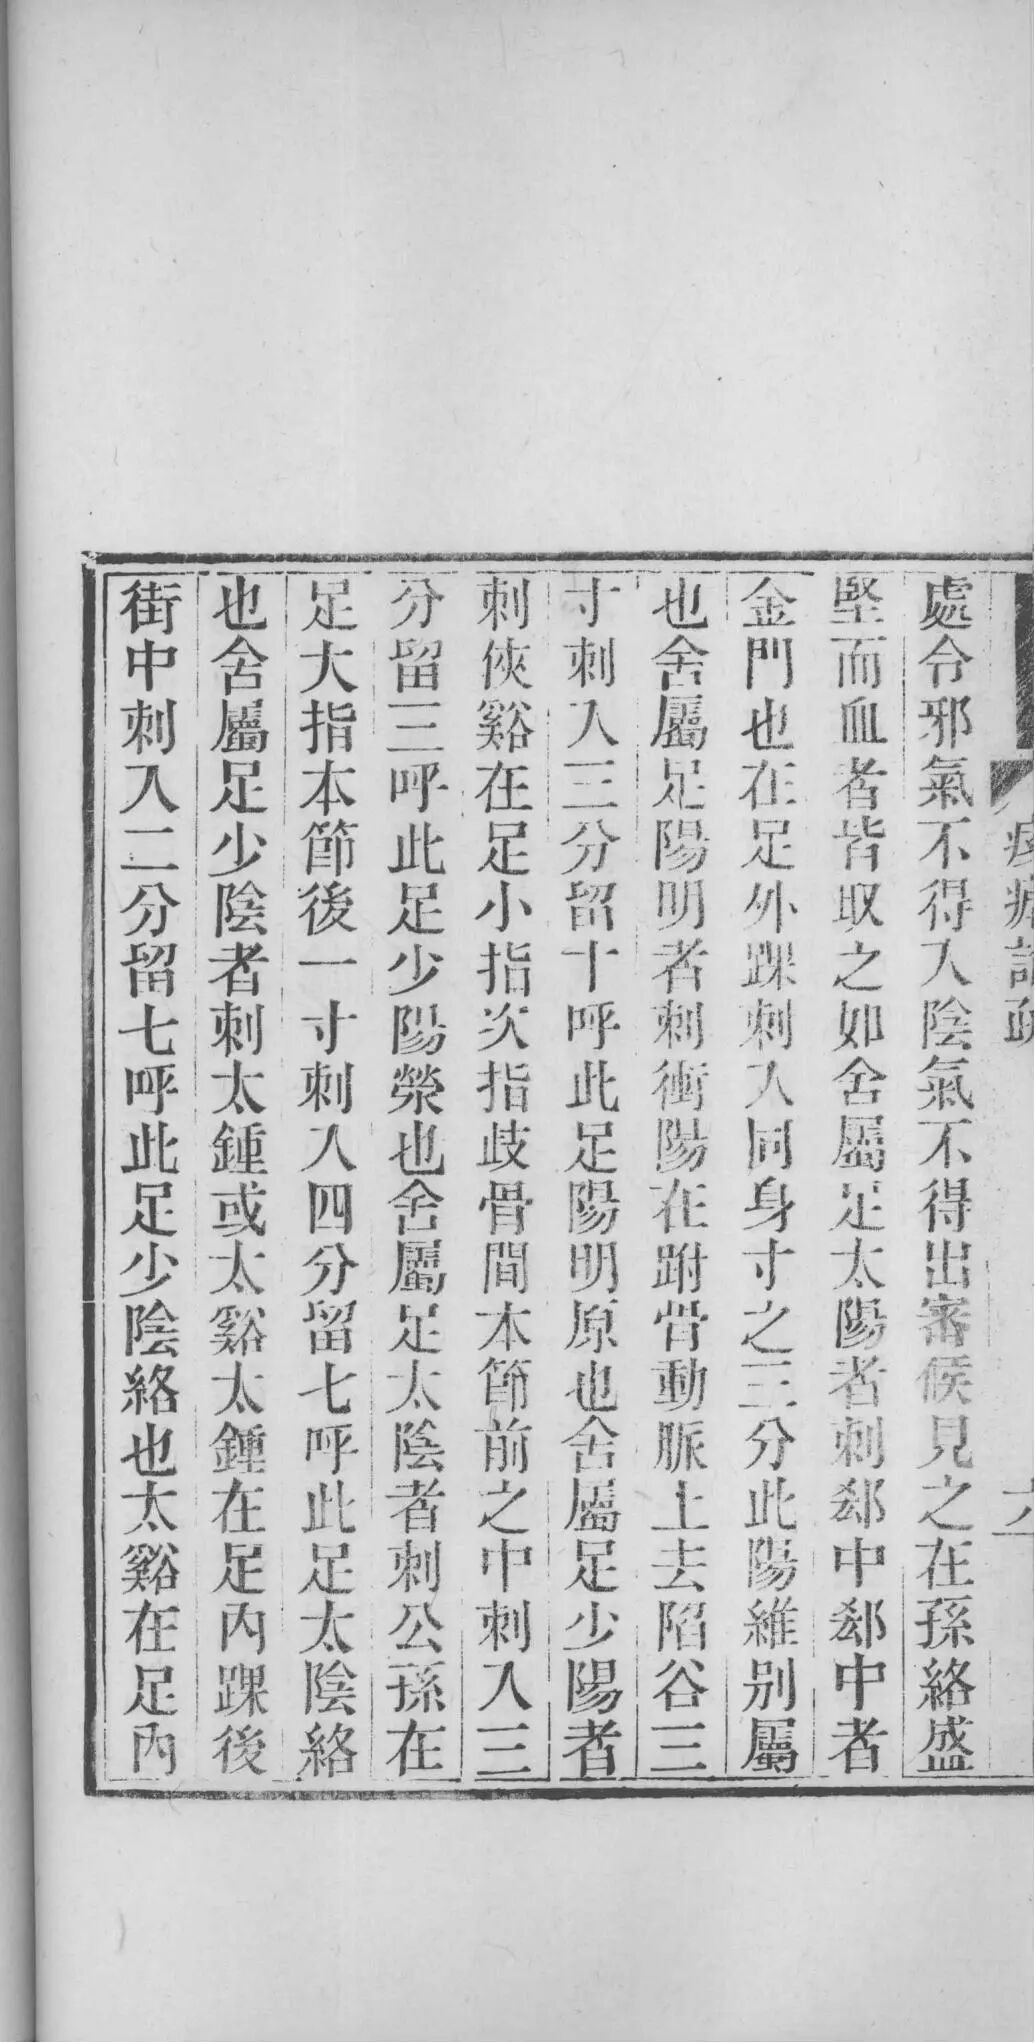 痎瘧論疏
處令邪氣不得入陰氣不得出審候見之在孫絡盛
堅而血者皆取之如舍屬足太陽者刺郄中郄中者
金門也在足外踝刺入同身寸之三分此陽維别屬
也舍屬足陽明者刺衝陽在跗骨動脈上去陷谷三
寸刺入三分留十呼此足陽明原也舍屬足少陽者
刺俠谿在足小指次指歧骨間本節前之中刺入三
分留三呼此足少陽榮也舍屬足太陰者刺公孫在
足大指本節後一寸刺入四分留七呼此足太陰絡
也舍屬足少陰者刺太鍾或太谿太鍾在足內踝後
街中刺入二分留七呼此足少陰絡也太谿在足內